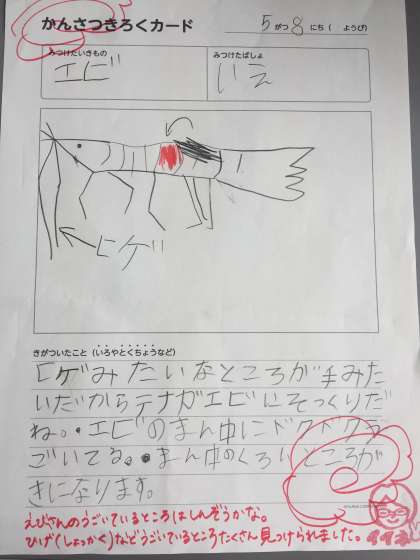 かんさつきろくカード
5がつ8にち(　ようび)
みつけたいきもの
エビ
みつけたばしょ
いえ
ヒゲ
きがついたこと(いろやとくちょうなど)
ヒゲみたいなところが手みた
いだからテナガエビにそっくりだ
ね。エビのまん中にドクドクう
ごいてる。まん中のくろいところが
きになります。
えびさんのうごいているところはしんぞうかな。
ひげ(しょっかく)などうごいているところたくさん見つけられました。